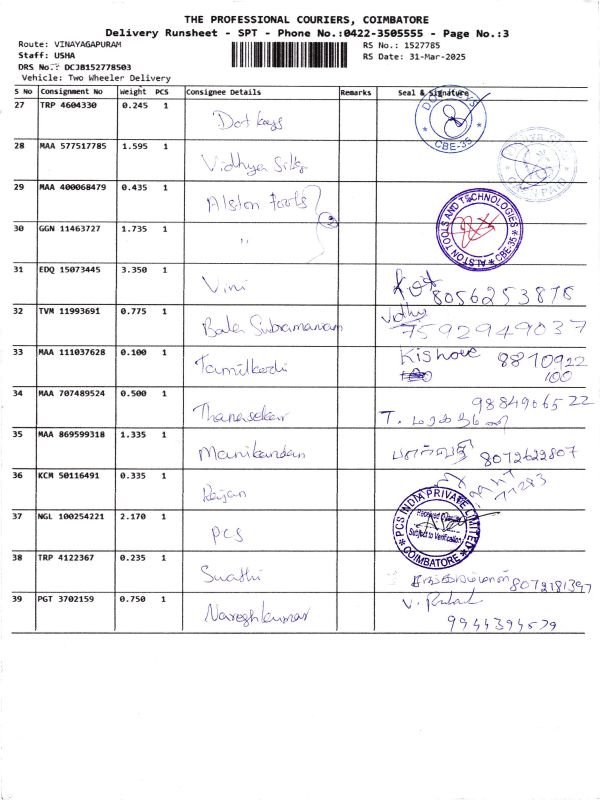 THE PROFESSIONAL COURIERS, COIMBATORE
Delivery Runsheet - SPT - Phone No.:0422-3505555 - Page No.:3
Route: VINAYAGAPURAM RS No.: 1527785
Staff: USHA RS Date: 31-Mar-2025
DRS No.: DCJB152778503
Vehicle: Two Wheeler Delivery
S No Consignment No Weight PCS Consignee Details Remarks Seal & Signature
27 TRP 4604330 0.245 1 Dot keys CBE-35
28 MAA 577517785 1.595 1 Vidhya Silks
29 MAA 400068479 0.435 1 Alston tools ALSTON TOOLS AND TECHNOLOGIES CBE-35
30 GGN 11463727 1.735 1 "
31 EDQ 15073445 3.350 1 Vini 8056253878
32 TVM 11993691 0.775 1 Bala Subramaniam Vidhy 7592949037
33 MAA 111037628 0.100 1 Tamilkodi Kishore 8810922
100
34 MAA 707489524 0.500 1 Thanasekar 9884906522
T.
35 MAA 869599318 1.335 1 Manikandan 8072623807
36 KCM 50116491 0.335 1 Rajan 77283
37 NGL 100254221 2.170 1 PCS PCS INDIA PRIVATE LIMITED COIMBATORE Subject to Verification
38 TRP 4122367 0.235 1 Swathi 8072181397
39 PGT 3702159 0.750 1 Nareshkumar V.
9944394579